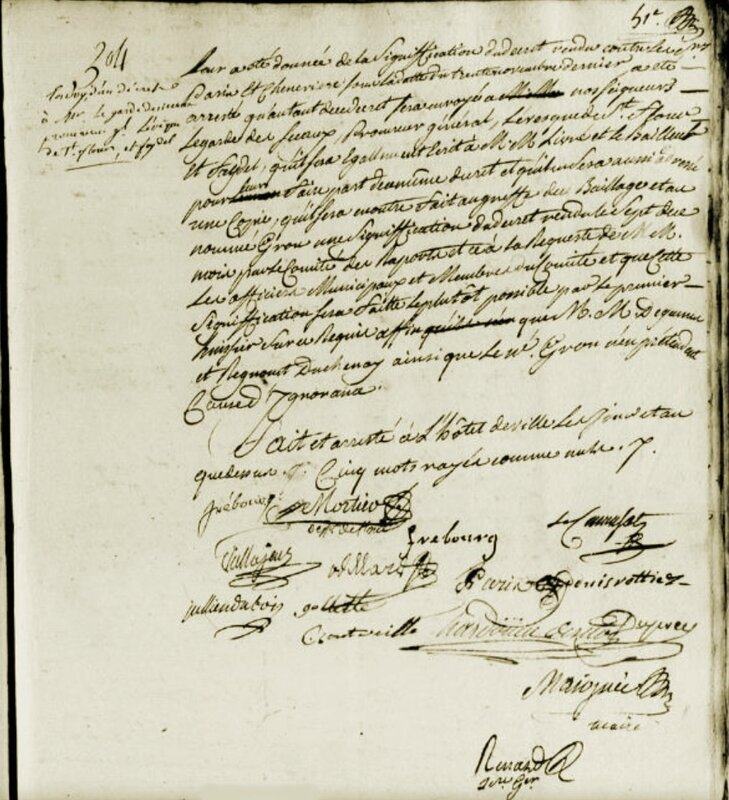 51e
204
à Mgr. le garde des
procureur gl. l'évêque
de St. flour, et faydel
pour a été donnée de la Signiffication dudecret rendu contre les srs
Paris Et Cheneviere sous la datte du trente novembre dernier a eté
arresté qu'autant dece decret sera envoyé a nosseigneurs
Legarde des Sceaux, Procureur général, Levesque de St. flour
Et faydel, quil sera Egallement Ecrit à M. M. Livré et le Bailleul
pour leur faire part dumême decret et qu'il en Sera aussi
une Copie, quil sera en outre fait au greffe du Baillage et au
nommé Grou une Signiffication dudecret rendu le Sept de ce
mois par le Comité des Raports et ce a la Requeste de M. M.
Les officiers Municipaux et Membres du Comité et que Cette
Signiffication sera faitte le plutôt possible par le premier
huissier Sur ce Requis affin que M. M. Deguenne
et Regnouet Duchenay ainsi que le né. Grou n'en prétendent
Cause d'Ignorance.
Fait et arresté à L'hôtel deville Les jour et an
que dessus . Cinq mots rayés comme nuls .
frébourg
Mortier
frebourg
Vallajeux
Paris
Denisrottier
julliendubois
gollette
Maignée
maire
Renard